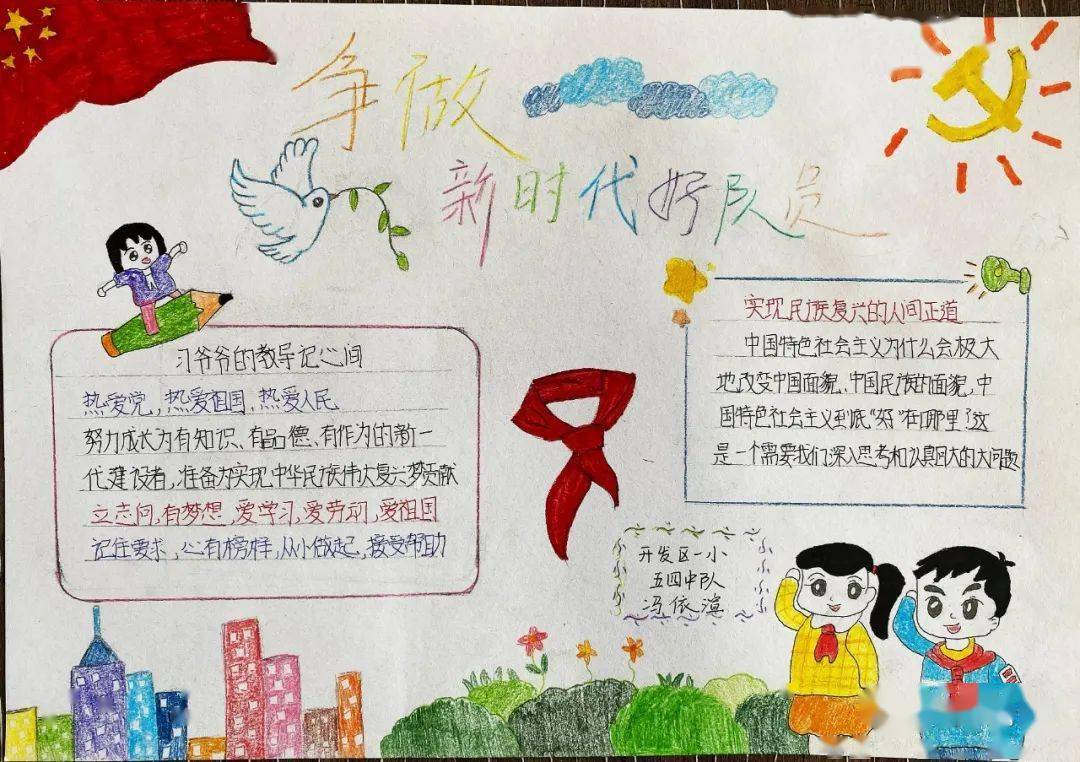 争做
新时代好队员
习爷爷的教导记心间
热爱党，热爱祖国，热爱人民
努力成长为有知识、有品德、有作为的新一
代建设者，准备为实现中华民族伟大复兴梦贡献
立志向，有梦想，爱学习，爱劳动，爱祖国
记住要求，心有榜样，从小做起，接受帮助
实现民族复兴的人间正道
中国特色社会主义为什么会极大
地改变中国面貌、中国民族的面貌，中
国特色社会主义到底“好”在哪里？这
是一个需要我们深入思考和认真回大的大问题
开发区一小
五四中队
冯依